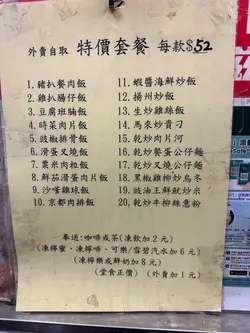 外賣自取 特價套餐 每款$52
1. 豬扒餐肉飯
2. 雞扒腸仔飯
3. 豆腐班腩飯
4. 時菜肉片飯
5. 豉椒排骨飯
6. 滑蛋叉燒飯
7. 粟米肉粒飯
8. 鮮茄滑蛋肉片飯
9. 沙嗲雞球飯
10. 京都肉排飯
11. 蝦醬海鮮炒飯
12. 揚州炒飯
13. 生炒雞絲飯
14. 馬來炒貴刁
15. 乾炒肉片河
16. 乾炒餐蛋公仔麵
17. 乾炒叉燒公仔麵
18. 黑椒雞柳炒烏冬
19. 豉油王鮮魷炒米
20. 乾炒牛柳絲意粉
奉送:咖啡或茶(凍飲加2元)
(凍檸蜜、凍檸啡、可樂/雪碧汽水加6元)
(凍檸樂或鮮奶加8元)
(堂食正價) (外賣加1元)